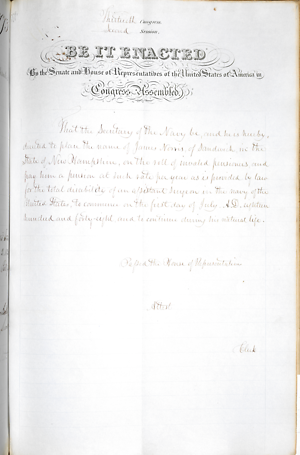 Thirtieth Congress
Second Session
BE IT ENACTED
By the Senate and House of Representatives of the United States of America in
Congress Assembled,
That the Secretary of the Navy be, and he is hereby
directed to place the name of James Norris of Sandwich in the
State of New Hampshire, on the roll of invalid pensioners and
pay him a pension at such rate per year as is provided by law
for the total disability of an Assistant Surgeon in the navy of the
United States, to commence on the first day of July A.D. eighteen
hundred and forty eight and to continue during his natural life.
Passed the House of Representatives
Attest.
Clerk